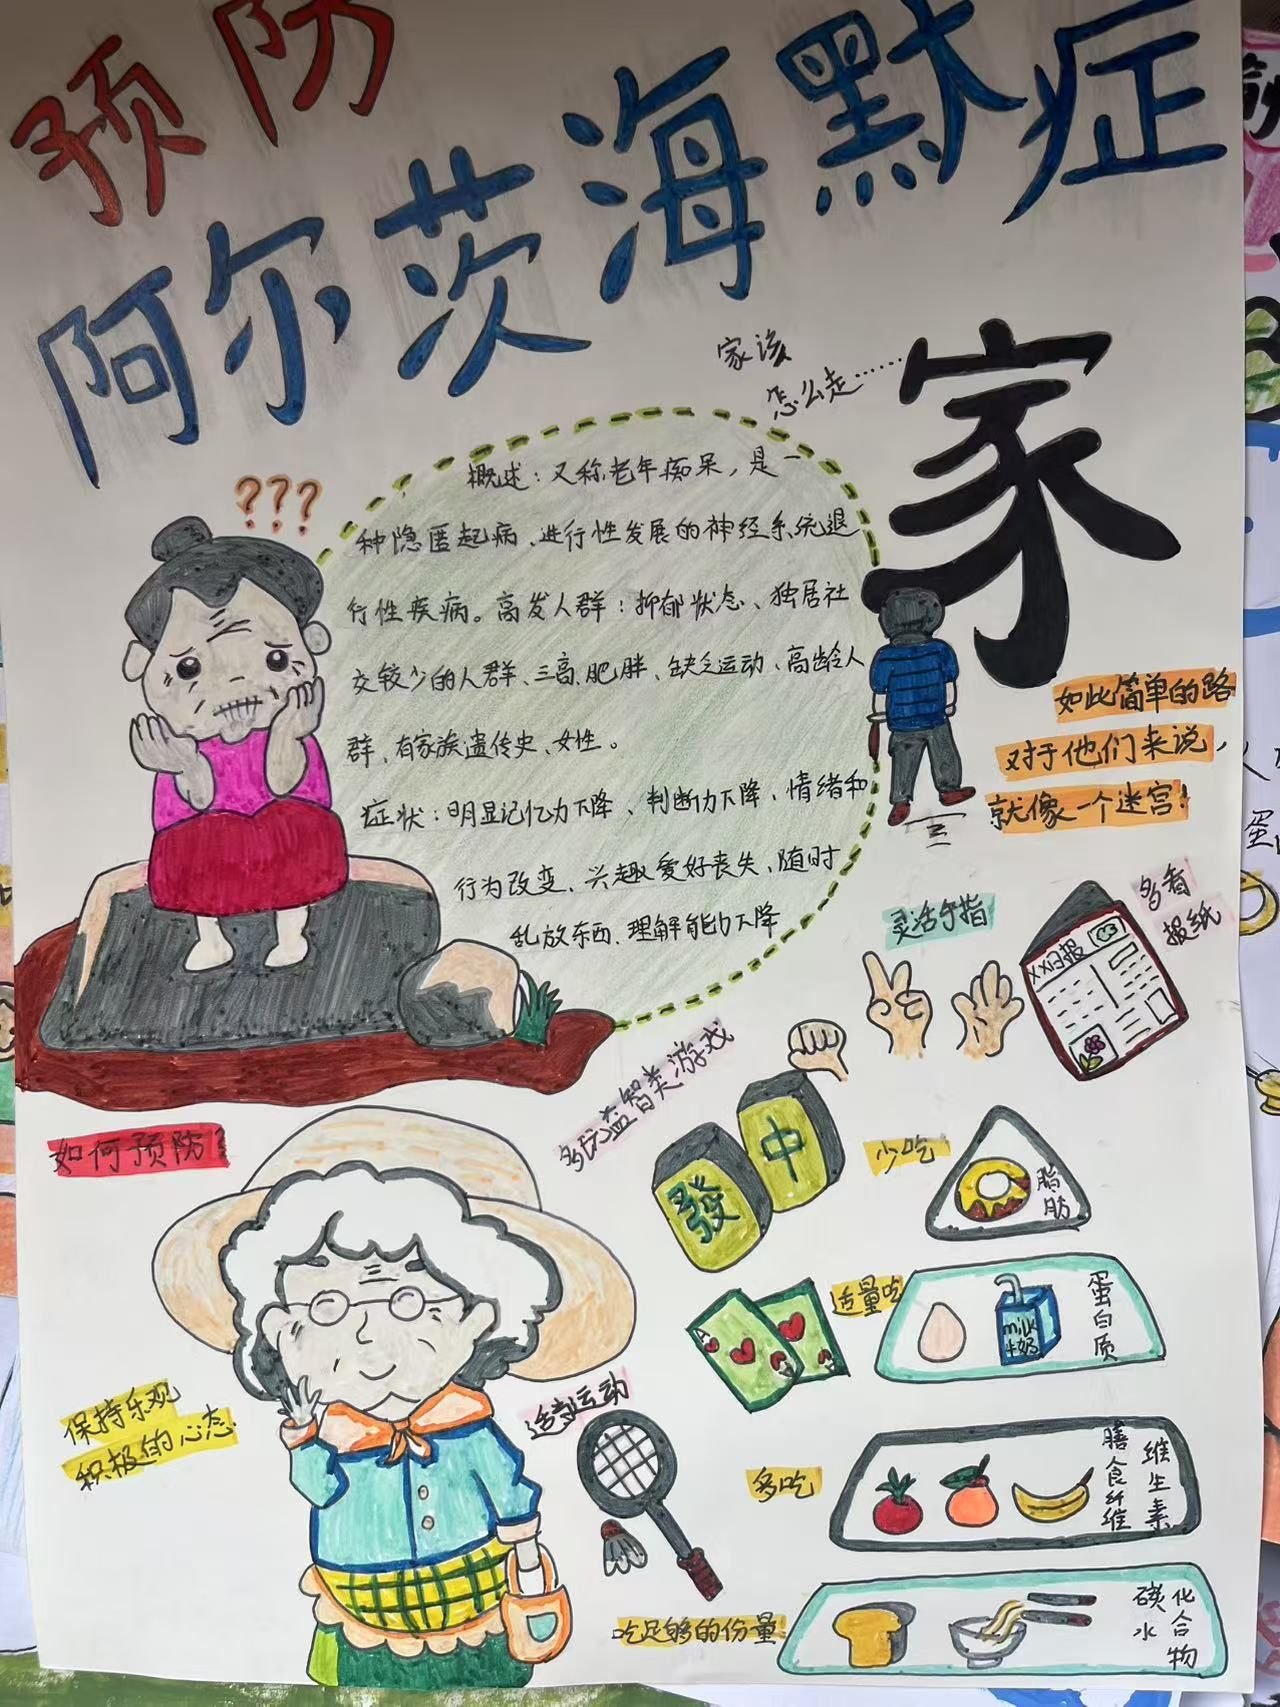 预防
阿尔茨海默症
家该
怎么走……
家
???
概述：又称老年痴呆，是一
种隐匿起病、进行性发展的神经系统退
行性疾病。高发人群：抑郁状态、独居社
交较少的人群、三高、肥胖、缺乏运动、高龄人
群、有家族遗传史、女性。
症状：明显记忆力下降、判断力下降、情绪和
行为改变、兴趣爱好丧失、随时
乱放东西、理解能力下降
如此简单的路
对于他们来说，
就像一个迷宫！
灵活手指
多看
报纸
XX日报
多玩益智类游戏
發
中
如何预防？
保持乐观
积极的心态
适当运动
少吃
脂肪
适量吃
milk
牛奶
蛋白质
多吃
膳食纤维
维生素
吃足够的份量
碳水
化合物